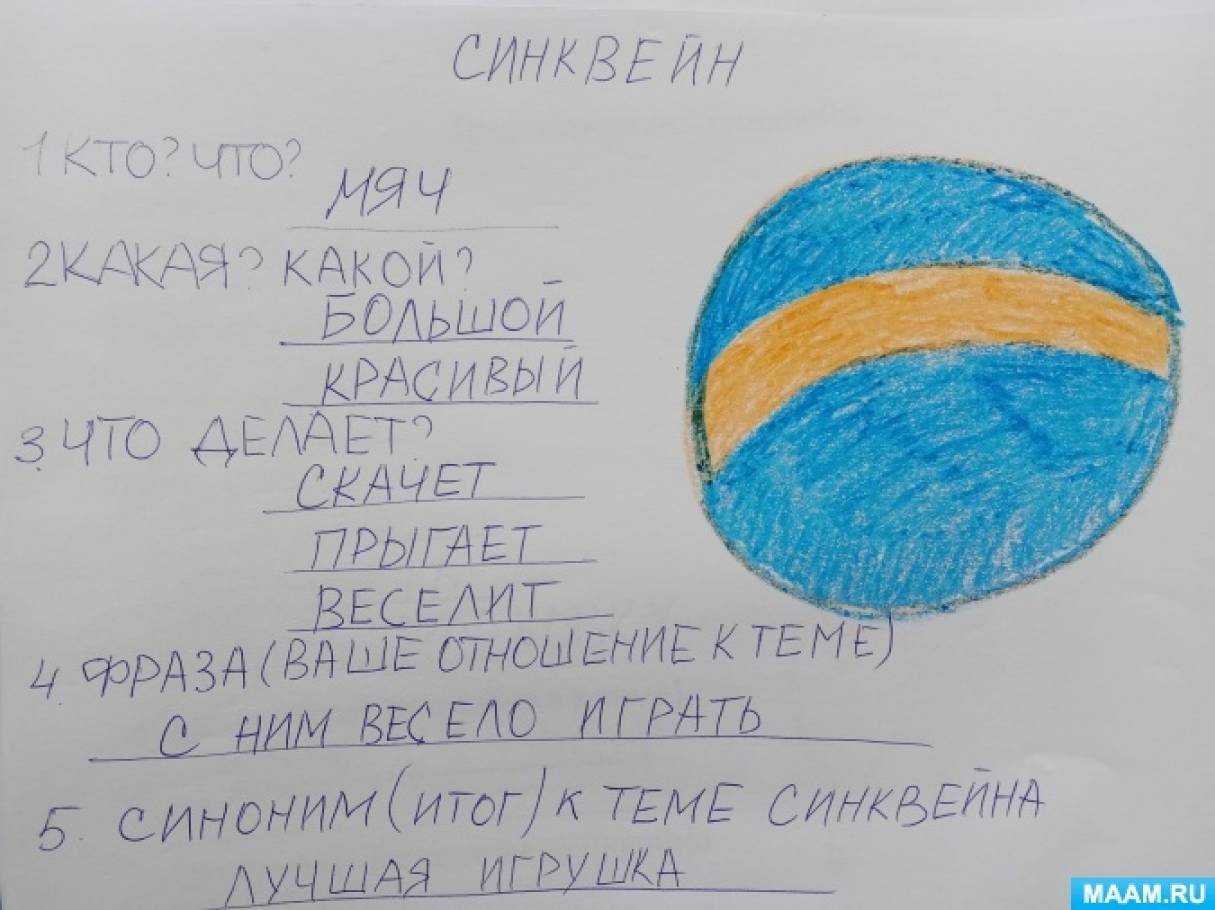 СИНКВЕЙН
1 КТО? ЧТО?
МЯЧ
2 КАКАЯ? КАКОЙ?
БОЛЬШОЙ
КРАСИВЫЙ
3. ЧТО ДЕЛАЕТ?
СКАЧЕТ
ПРЫГАЕТ
ВЕСЕЛИТ
4. ФРАЗА (ВАШЕ ОТНОШЕНИЕ К ТЕМЕ)
С НИМ ВЕСЕЛО ИГРАТЬ
5. СИНОНИМ (ИТОГ) К ТЕМЕ СИНКВЕЙНА
ЛУЧШАЯ ИГРУШКА
MAAM.RU